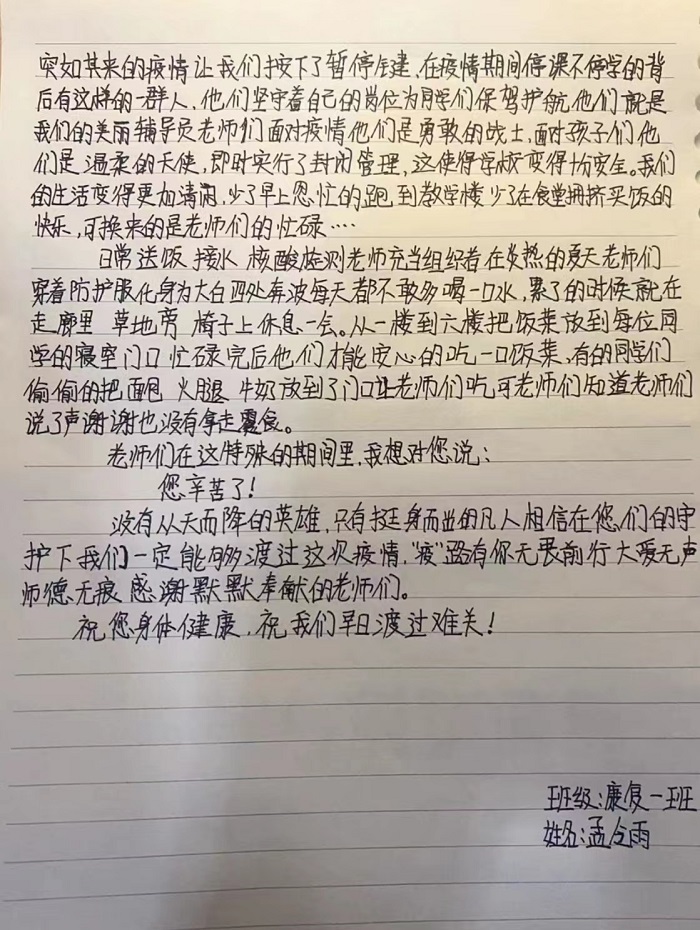 突如其来的疫情让我们按下了暂停键,在疫情期间停课不停学的背
后有这样的一群人,他们坚守着自己的岗位为同学们保驾护航他们就是
我们的美丽辅导员老师们面对疫情他们是勇敢的战士,面对孩子们他
们是温柔的天使,即时实行了封闭管理,这使得学校变得十分安全。我们
的生活变得更加清闲,少了早上忽忙的跑到教学楼少了在食堂拥挤买饭的
快乐,可换来的是老师们的忙碌····
日常送饭 接水 核酸检测老师充当组织者在炎热的夏天老师们
穿着防护服化身为大白四处奔波每天都不敢多喝一口水,累了的时候就在
走廊里 草地旁 椅子上休息一会。从一楼到六楼把饭菜放到每位同
学的寝室门口忙碌完后他们才能安心的吃一口饭菜,有的同学们
偷偷的把面包 火腿 牛奶放到了门口让老师们吃,可老师们知道老师们
说了声谢谢也没有拿走零食。
老师们在这特殊的期间里,我想对您说:
您辛苦了!
没有从天而降的英雄,只有挺身而出的凡人相信在您们的守
护下我们一定能够渡过这次疫情,“疫”路有你无畏前行大爱无声
师德无痕 感谢默默奉献的老师们。
祝您身体健康,祝我们早日渡过难关!
班级:康复一班
姓名:孟令雨